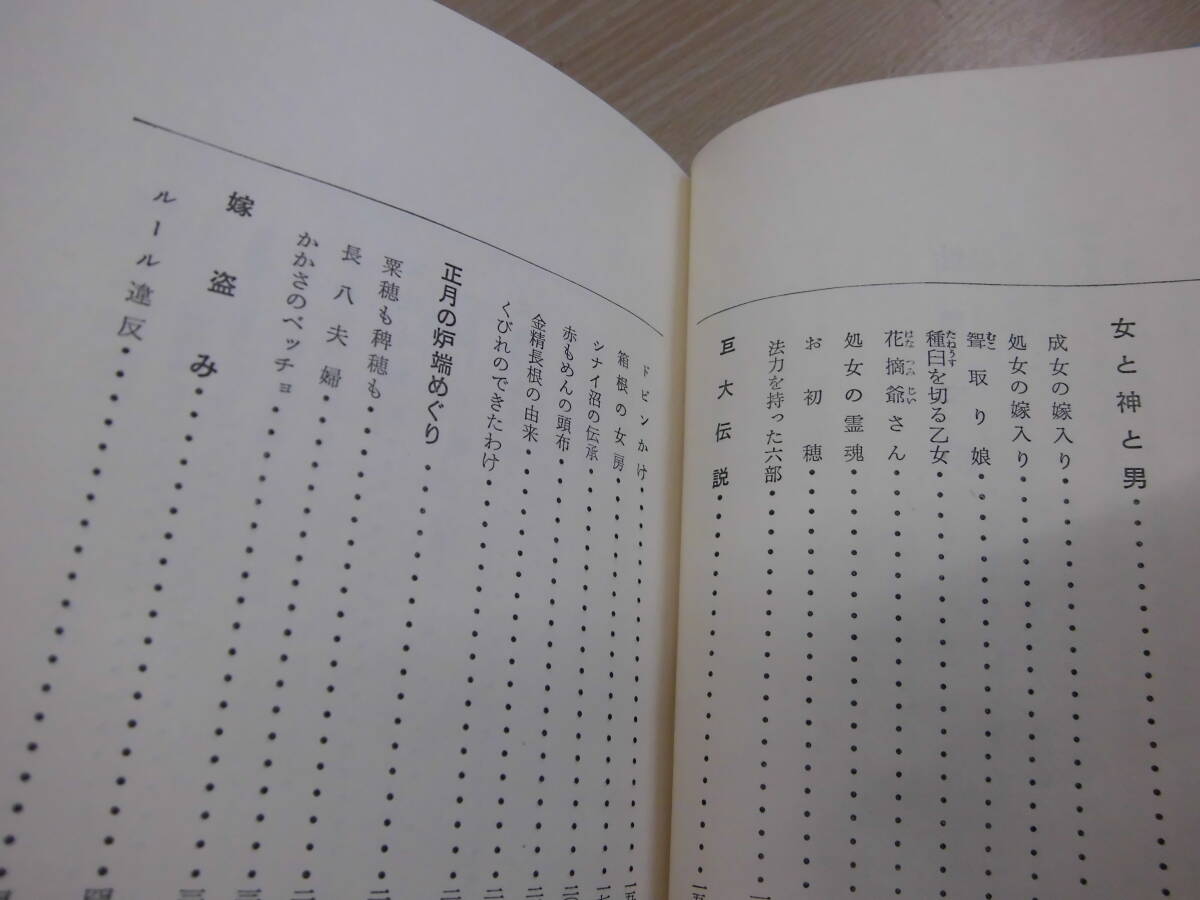 女と神と男
成女の嫁入り
処女の嫁入り
聟取り娘
種臼を切る乙女
花摘爺さん
処女の霊魂
お初穂
法力を持った六部
巨大伝説
ドビンかけ
箱根の女房
シナイ沼の伝承
赤もめんの頭布
金精長根の由来
くびれのできたわけ
正月の炉端めぐり
粟穂も稗穂も
長八夫婦
かかさのベッチョ
嫁盗み
ルール違反